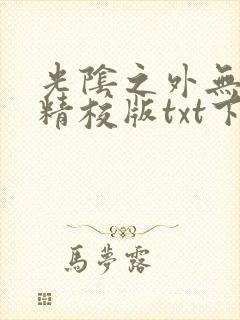 光陰之外無
精校版txt下
馬夢露